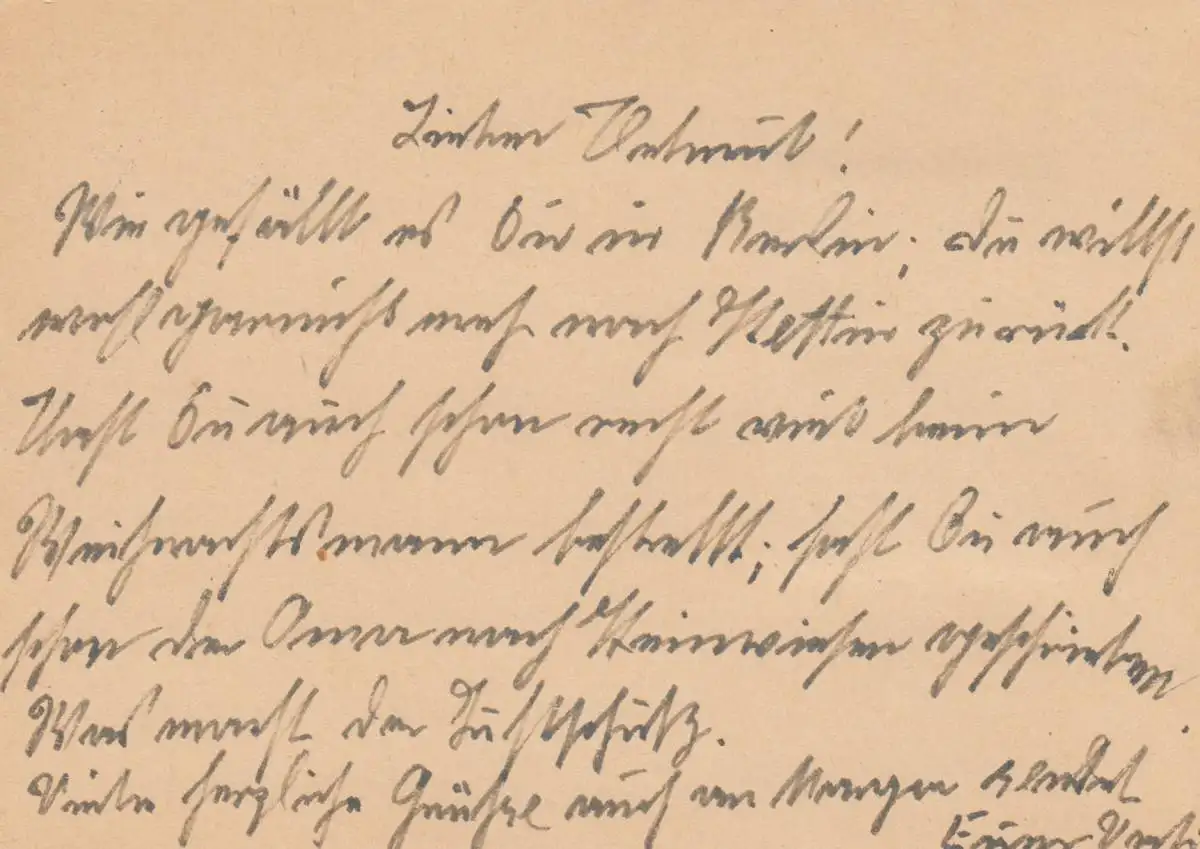 Lieber Helmut!
Wie gefällt es Dir in Berlin; du willst
wohl garnicht mehr nach Stettin zurück.
Hast Du auch schon recht viel beim
Weihnachtsmann bestellt; hast Du auch
schon der Oma nach Steinwiesen geschrieben.
Was macht der Luftschutz.
Viele herzliche Grüße auch an sendet
Euer Vati